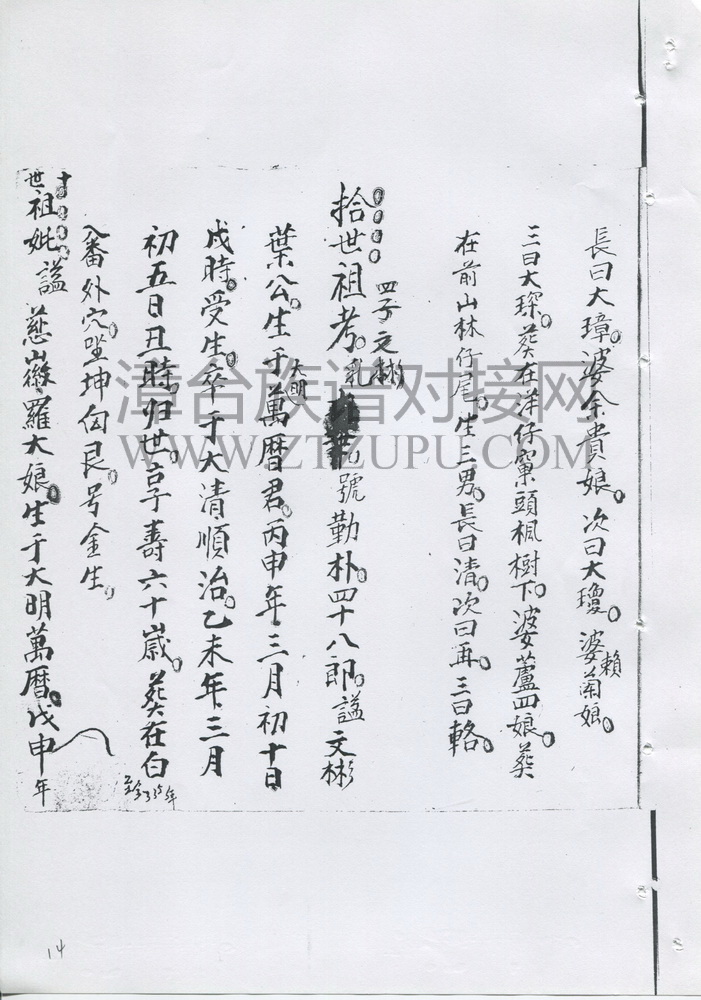 長曰大璋。婆余貴娘。次曰大瓊。婆賴蘭娘。
三曰大琛。葵在洋仔窠頭楓樹下。婆蘆四娘。葵
在前山林仔尾。生三男。長曰清。次曰再。三曰輅。
四子文彬
拾世祖考。乳 號勤朴。四十八郎。謚文彬
葉公。生于大明萬曆君。丙申年三月初十日
戌時。受生。卒于大清順治。乙未年三月
初五日丑時。归世。享寿六十歲。葵在白
八番外穴。坐坤向艮。号金生。
十世祖妣。謚慈徽羅大娘。生于大明萬曆。戊申年
漳台族谱对接网
WWW.ZTZUPU.COM
14